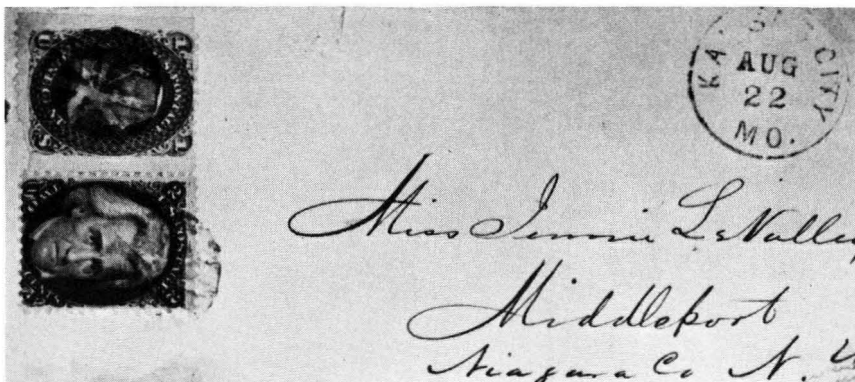 KANSAS CITY
AUG
22
MO.
Miss Jennie LeValley
Middleport
Niagara Co N. Y